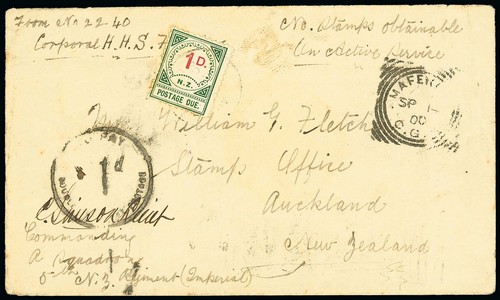 From No 22 40
Corporal H.H.S. F
No. Stamps obtainable
On Active Service
1D.
N.Z.
POSTAGE DUE.
MAFEK
SP 1
00
C.G.
William G. Fletch
Stamp Office
Auckland
New Zealand
PAY
1d
Commanding
A Squadron
5th N.Z. Regiment (Imperial)